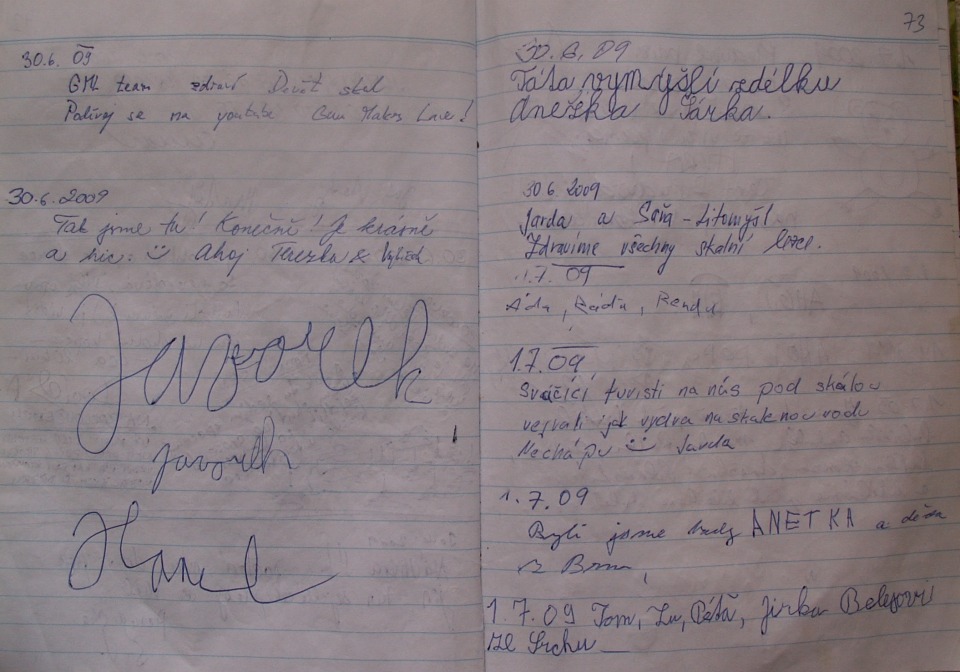 30.6. 09
GML team zdraví Devět skal
Podívej se na youtube Gun Makes Love!
30.6.2009
Tak jsme tu! Konečně! Je krásně
a nic. Ahoj Terezka &
Javorek
Javorek
73
30.6.09
Táta vymýšlí zdélku
Anežka Šárka.
30 6 2009
Jarda a Saša - Litomyšl
Zdravíme všechny skalní lezce.
1.7. 09
Áda, Ráďa, Renda
1.7.09
Svačící turisti na nás pod skálou
vejrali jak vydra na skalenou vodu
Nechápu Jarda
1.7.09
Byli jsme tady ANETKA a děda
z Brna,
1.7.09 Tom, Lu, Péťa, Jirka
ze Srchu